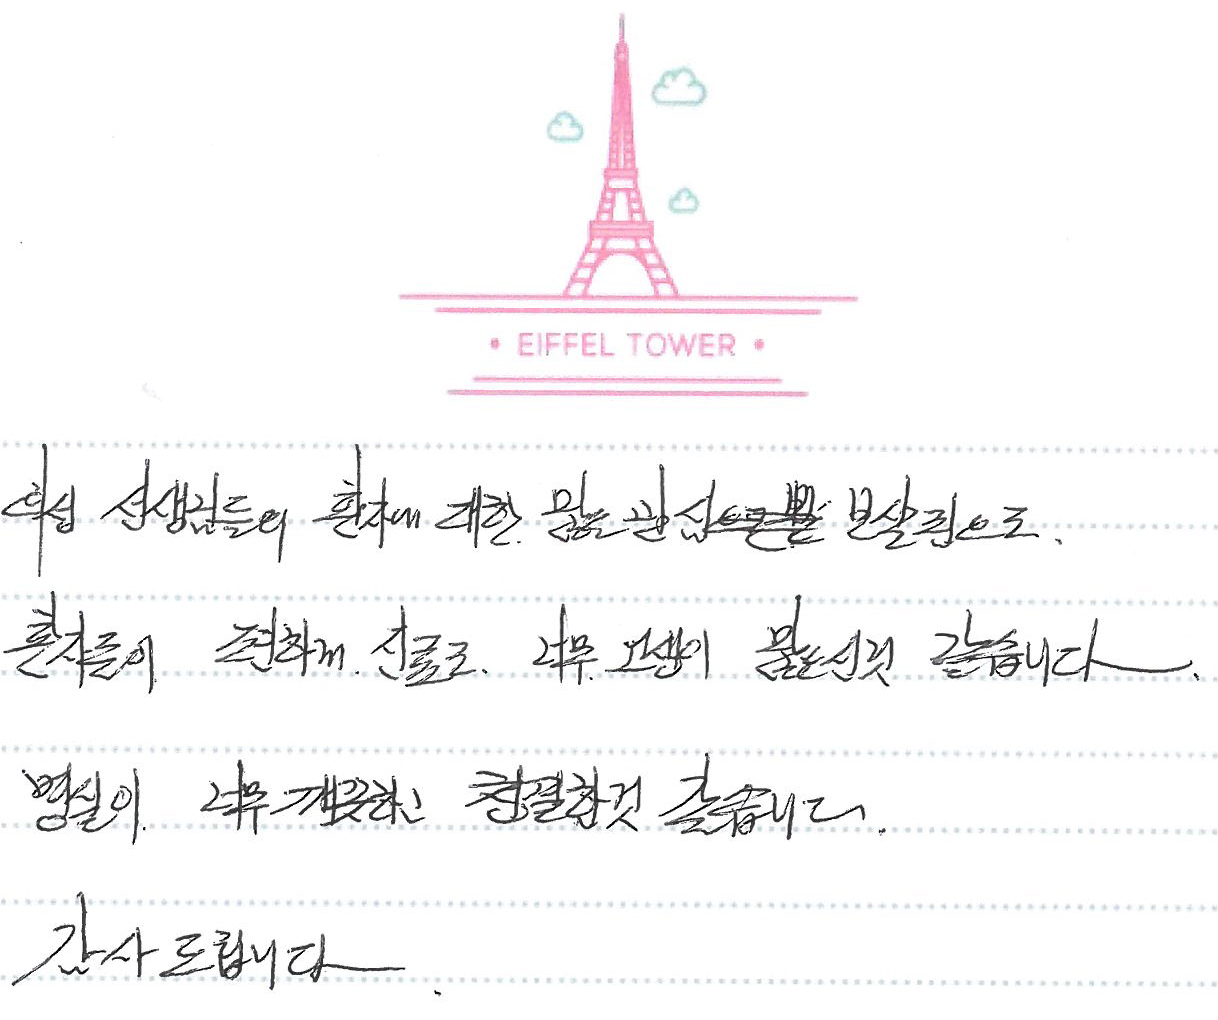 • EIFFEL TOWER •
선생님들의 환자에 대한 많은 관심 보살핌으로.
환자들이 편하게 진료로. 너무 고생이 많으신것 같습니다.
병실이 너무 깨끗하고 청결한것 같습니다.
감사 드립니다.